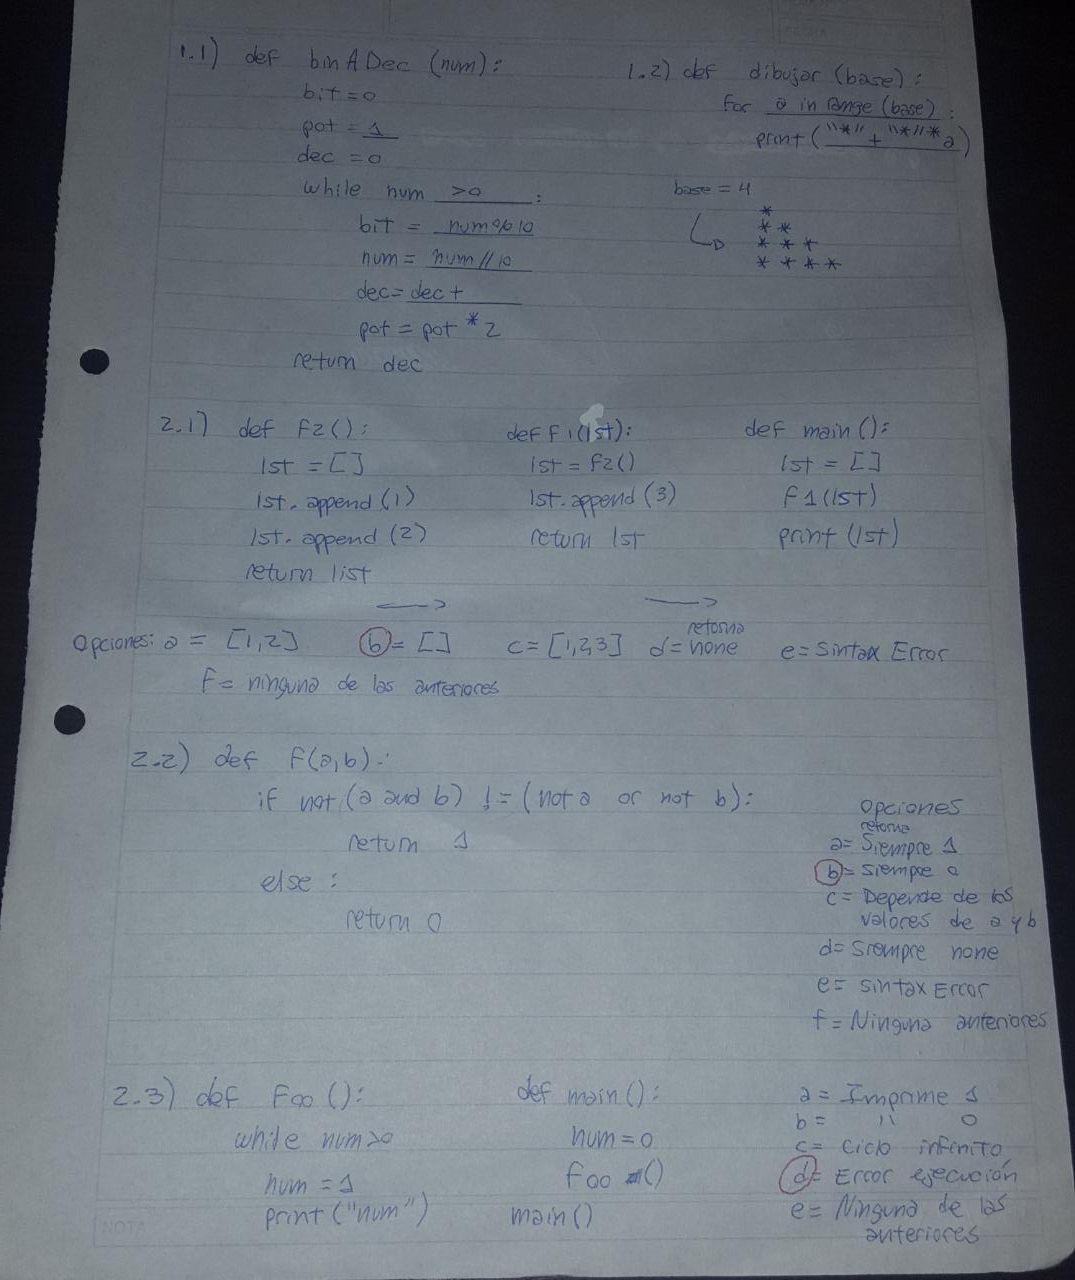 1.1) def binADec (num):
bit=0
pot = 1
dec = 0
while num >0 :
bit = num%10
num = num//10
dec= dec +
pot = pot * 2
return dec
1.2) def dibujar (base):
For a in range (base) :
print ("*" + "*"*a)
base = 4
*
* *
* * *
* * * *
2.1) def F2():
lst = []
lst. append (1)
lst. append (2)
return list
def f1(lst):
lst = f2()
lst. append (3)
return lst
def main():
lst = []
F1(lst)
print (lst)
Opciones: a = [1,2] b = [] c = [1,2,3] d = retorna none e = Sintax Error
F = ninguna de las anteriores
2.2) def F(a,b):
if not (a and b) != (not a or not b):
return 1
else :
return 0
Opciones
retorna
a= Siempre 1
b= Siempre 0
c = Depende de los
valores de a y b
d= Siempre none
e= sintax Error
f = Ninguna anteriores
2.3) def Foo ():
while num>0
num = 1
print ("num")
def main():
num=0
foo ()
main()
a = Imprime 1
b = " 0
c= Ciclo infinito
d= Error ejecución
e= Ninguna de las
anteriores
NOTA